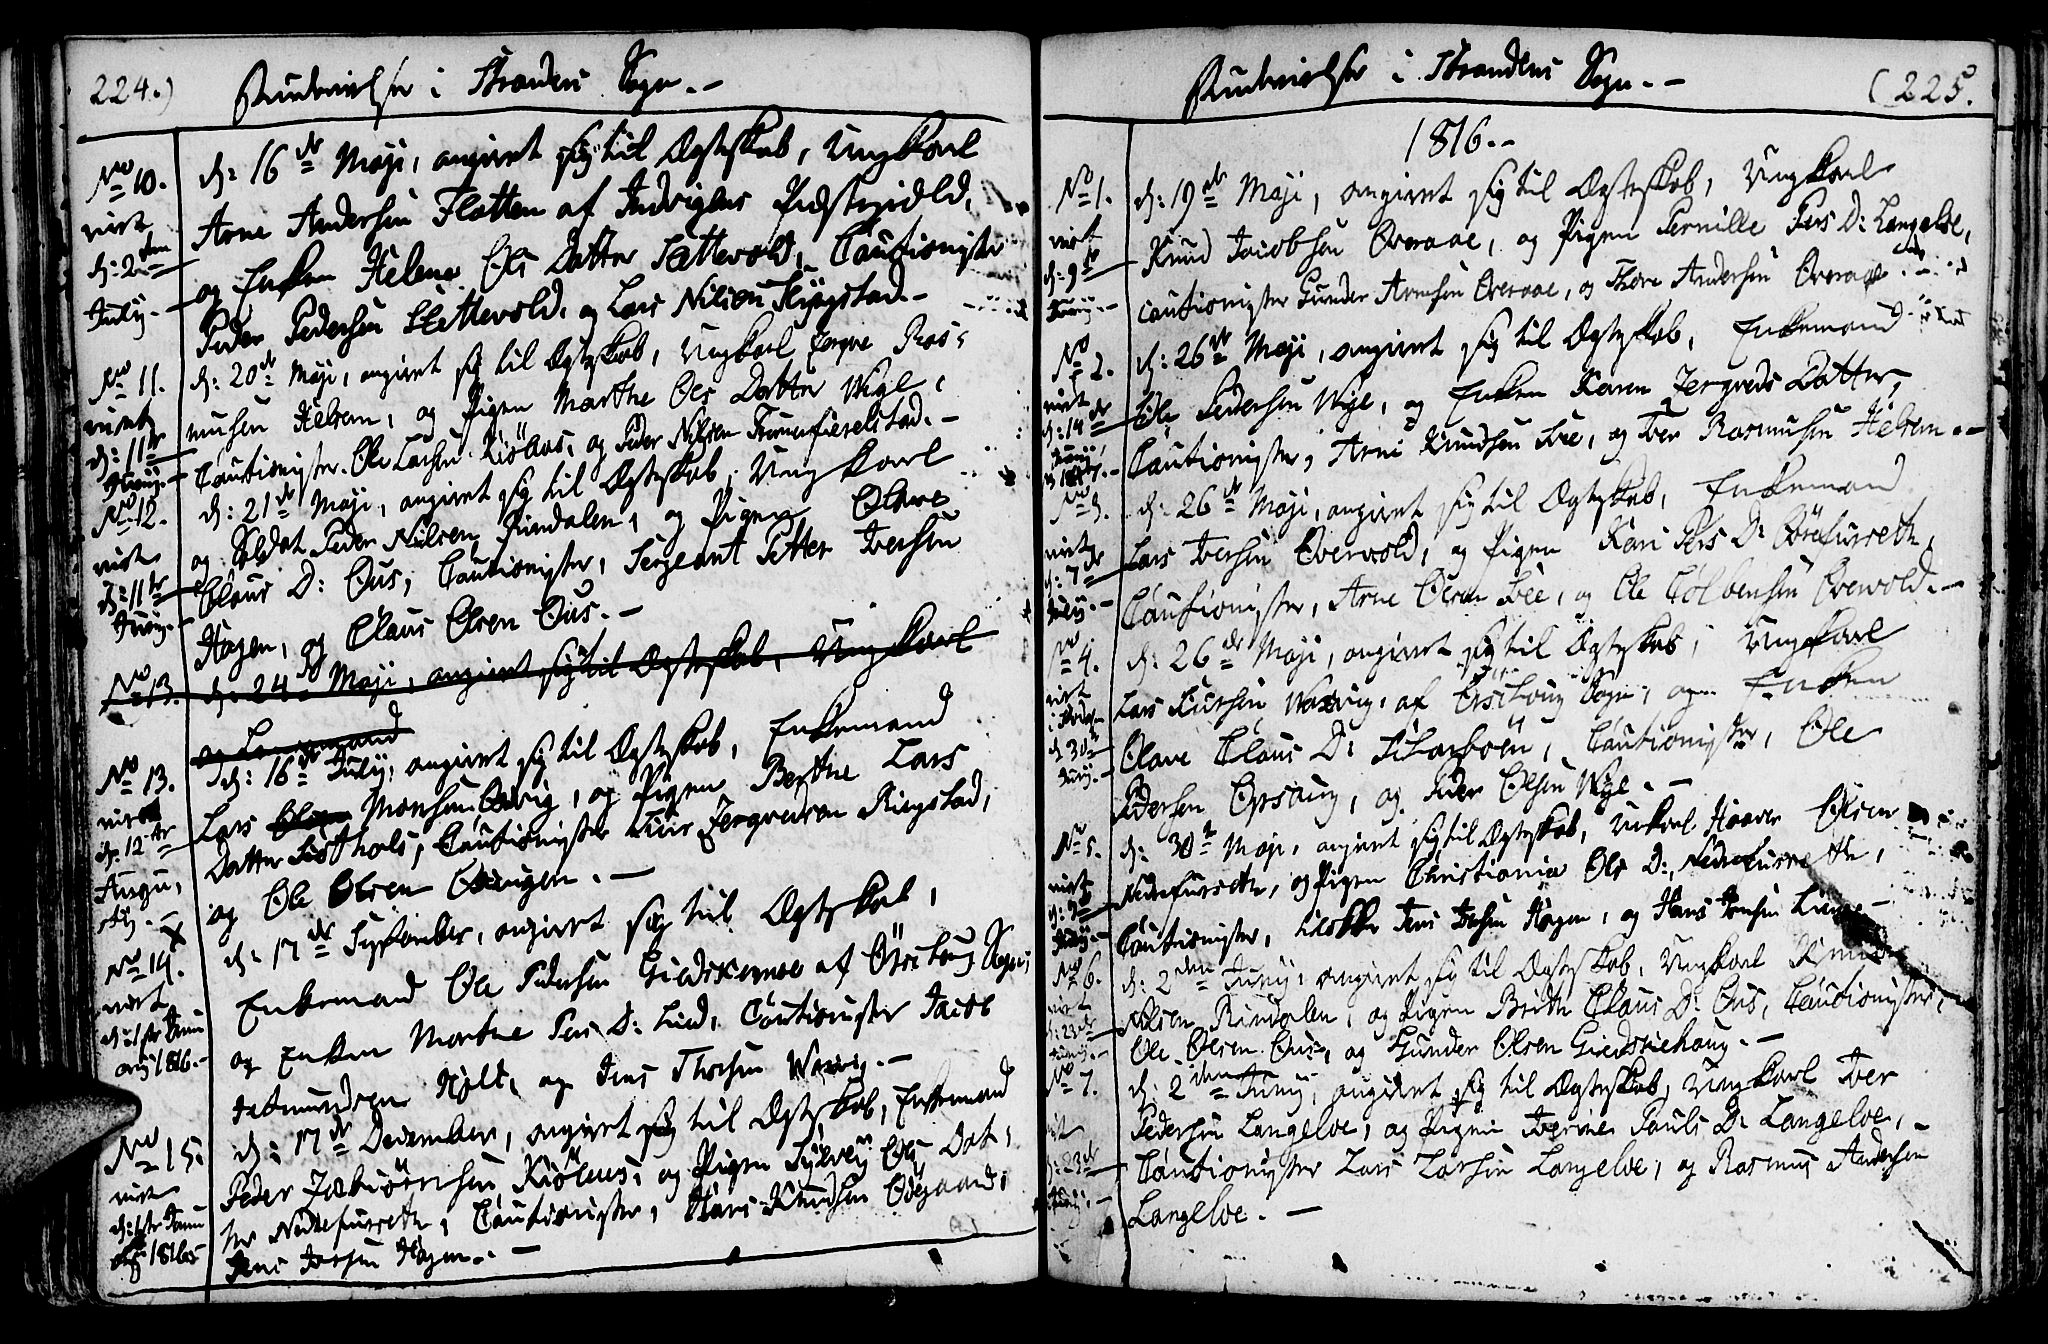 224.)
i Strandens Sogn. -
No 10.
viet
d: 2den
July. -
d: 16de Maji, angivet sig til Ægteskab, Ungkarl
Arne Andersen Flatten af Indvigens Præstegield,
og Enken Helena Ols Datter Sættevold, Cautionister
Peder Pedersen Slettevold, og Lars Nilsen Ringstad. -
No 11.
viet
d: 11te
Juny. -
d: 20de Maji, angivet sig til Ægteskab, Ungkarl Jørgen Ras-
musen Helsem, og Pigen Marthe Ols Datter Wige,
Cautionister Ole Larsen Kiölaas, og Peder Nilsen
No 12.
viet
d: 11te
Juny. -
d: 21de Maji, angivet sig til Ægteskab, Ungkarl
og Soldat Peder Nilsen Rindalen, og Pigen Olave
Claus D: Ous, Cautionister, Sergeant Petter Iversen
Hagen, og Claus Olsen Ous. -
No 13. d: 24de Maji, angivet sig til Ægteskab, Ungkarl
No 13.
viet
d: 12te
Augu-
sty. -
d: 16de July, angivet sig til Ægteskab, Enkemand
Lars Olsen Monsen, og Pigen Berthe Lars
Datter Cautionister Ringstad,
og Ole Olsen
No 14.
viet
d: 1ste Janu
arij 1816. -
d: 17de September, angivet sig til Ægteskab,
Enkemand Ole Pedersen af Örschoug Sogn,
og Enken Marthe Pers D: Lied, Cautionister Jacob
Hyldt, og Jens Thorsen -
No 15.
viet
d: 1ste Janu
1816
d: 17de December, angivet sig til Ægteskab, Enkemand
Peder Kiölaas, og Pigen Sylvey Ols Dat-
ter Nedrefurseth, Cautionister, Hans Knudsen Ödegaard,
Jens Iversen Hagen. -
i Strandens Sogn. -
(225.
1816. -
No 1.
viet
d: 9de
Juny. -
d: 19de Maji, angivet sig til Ægteskab, Ungkarl
Knud Jacobsen Overaae, og Pigen Pernille Pers D: Langeloe,
Cautionister Gunder Arnesen Overaae, og Thore Andersen Overaae
No 2.
viet
d: 14de
d: 26de Maji, angivet sig til Ægteskab, Enkemand
Ole Pedersen Wige, og Enken Karen Jergens Datter,
Cautionister, Arne Knudsen Ive, og Iver Rasmusen Helsem. -
No 3.
viet
d: 7de
July. -
d: 26de Maji, angivet sig til Ægteskab, Enkemand
Lars Iversen Overvold, og Pigen Kari Pers D: Övrefurseth,
Cautionister, Arne Olsen Ive, og Ole Colbensen Overvold. -
No 4.
viet
d: 30te
Juny. -
d: 26de Maji, angivet sig til Ægteskab, Ungkarl
Lars af Örschoug Sogn, og Enken
Olave Claus D: Cautionister, Ole
Pedersen Opsoug, og Peder Olsen Wige. -
No 5.
viet
d: 30te Maji, angivet sig til Ægteskab, Unkarl Haaver Olsen
Nedrefurseth, og Pigen Christiania Ols D: Nedrefurseth,
Cautionister, Klokker Jens Iversen Hagen, og Hans Jensen
No 6.
viet
d: 23de
Juny. -
d: 2den Juny, angivet sig til Ægteskab, Ungkarl
Nilsen Rindalen, og Pigen Brithe Claus D: Ous, Cautionister,
Ole Olsen Ous, og Gunder Olsen Giedskiehoug. -
No 7.
d: 23de
Juny. -
d: 2den Juny, angivet sig til Ægteskab, Ungkarl Iver
Pedersen Langeloe, og Pigen Iverine Pauls D: Langeloe, -
Cautionister Lars Larsen Langeloe, og Rasmus Andersen
Langeloe. -